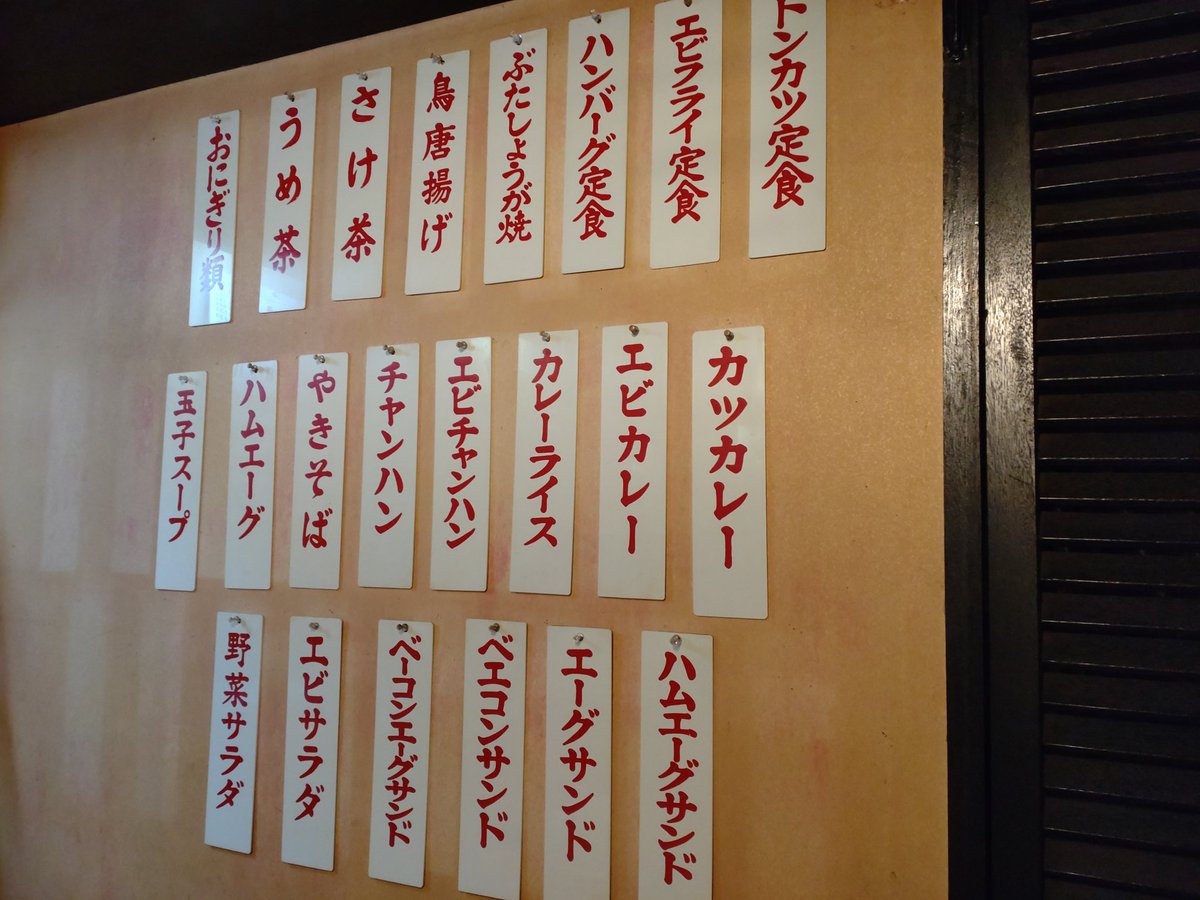 トンカツ定食
エビフライ定食
ハンバーグ定食
ぶたしょうが焼
鳥唐揚げ
さけ茶
うめ茶
おにぎり類
カツカレー
エビカレー
カレーライス
エビチャンハン
チャンハン
やきそば
ハムエーグ
玉子スープ
ハムエーグサンド
エーグサンド
ベエコンサンド
ベーコンエーグサンド
エビサラダ
野菜サラダ